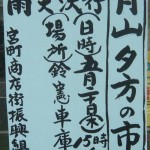 月山夕方の市
(日時)五月二十日(木)15時
(場所)鈴憲車庫
宮町商店街振興組